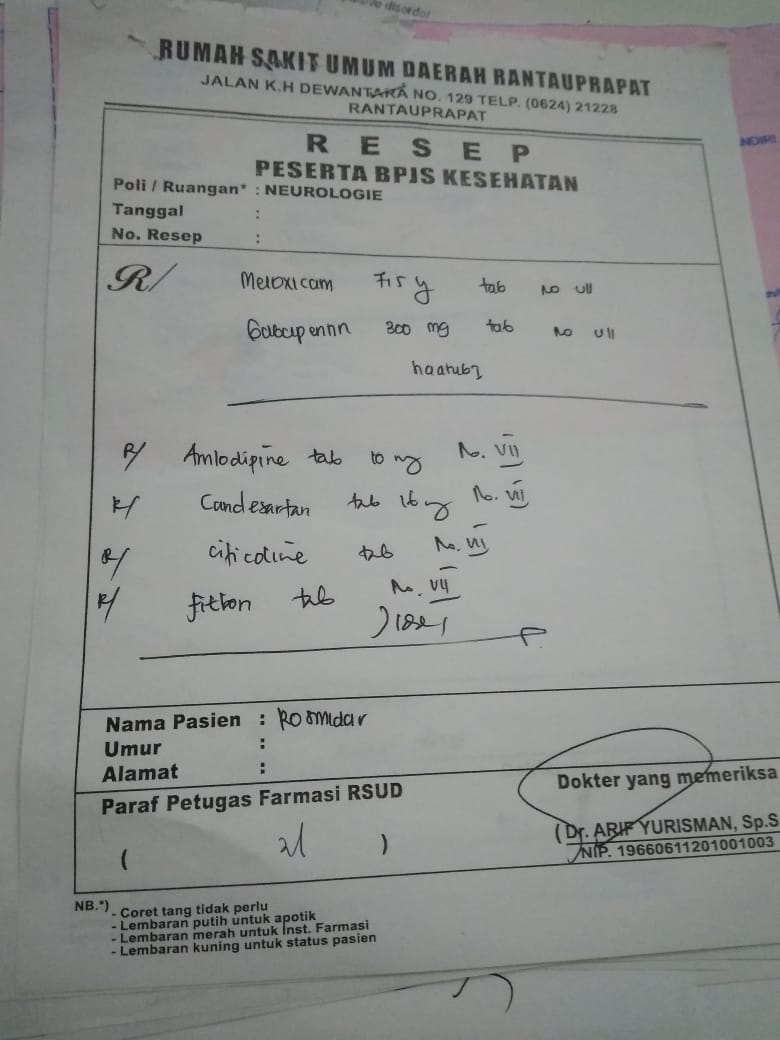 disorder
RUMAH SAKIT UMUM DAERAH RANTAUPRAPAT
JALAN K.H DEWANTARA NO. 129 TELP. (0624) 21228
RANTAUPRAPAT
RESEP
PESERTA BPJS KESEHATAN
Poli / Ruangan* : NEUROLOGIE
Tanggal :
No. Resep :
R/ Meloxicam tab no
Gabapentin 300 mg tab no
R/ Amlodipine tab 10 mg No. VII
R/ Candesartan tab 16 mg No. VII
R/ citicoline tab No. VII
R/ fitbon tab No. VII
Nama Pasien : Rosmidar
Umur :
Alamat :
Paraf Petugas Farmasi RSUD
Dokter yang memeriksa
( )
(Dr. ARIF YURISMAN, Sp.S
NIP. 19660611201001003
NB.*) - Coret tang tidak perlu
- Lembaran putih untuk apotik
- Lembaran merah untuk Inst. Farmasi
- Lembaran kuning untuk status pasien